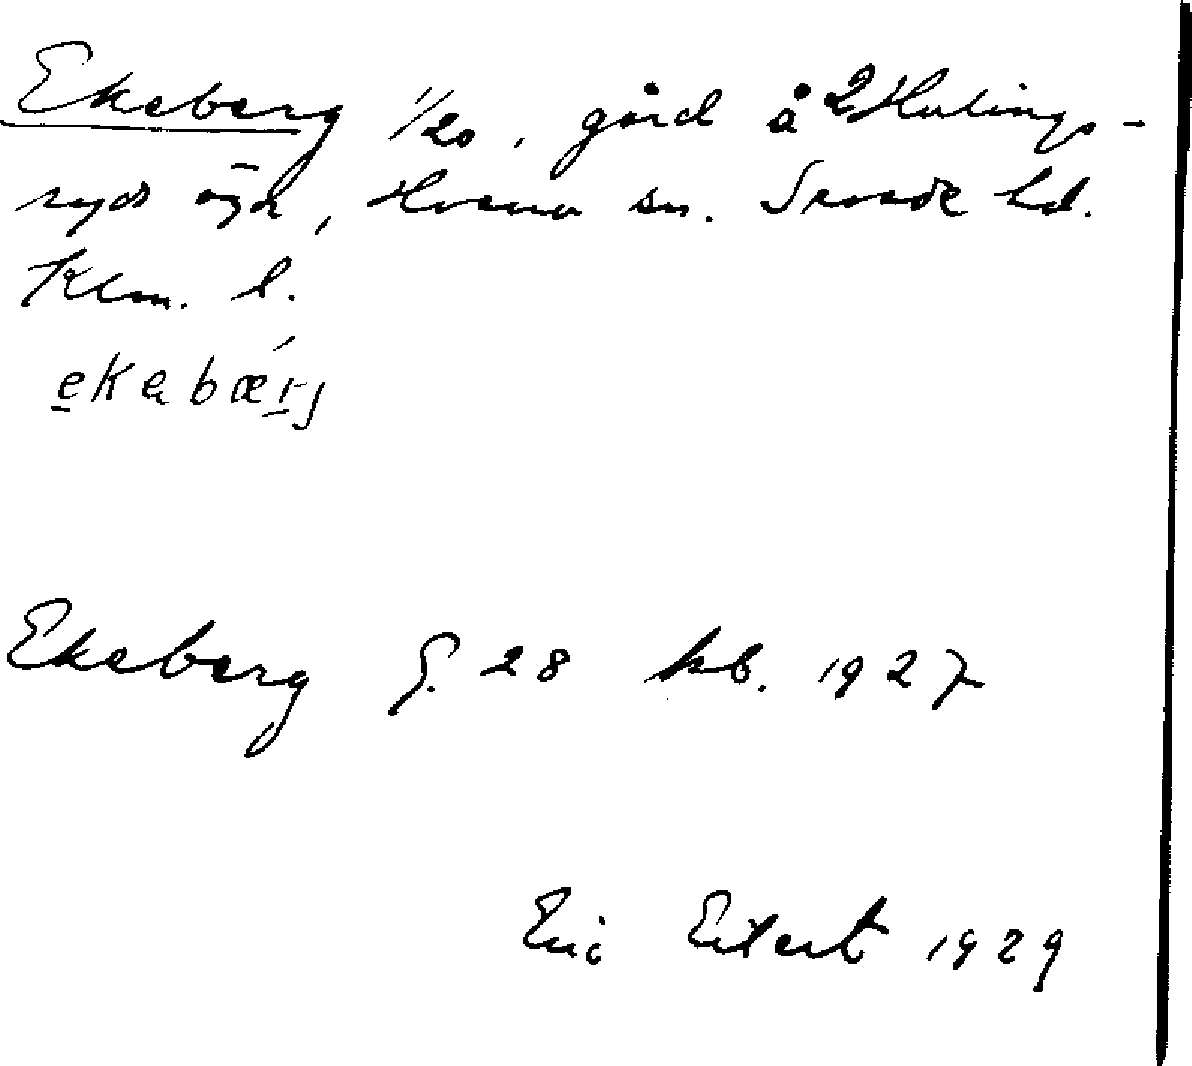 Ekeberg 1/20, gård å Hulings-
ryds äga, Hvena sn. Sevede hd.
Klm. l.
ekabærj
Ekeberg S. 28 kb. 1927
Eric Eilert 1929